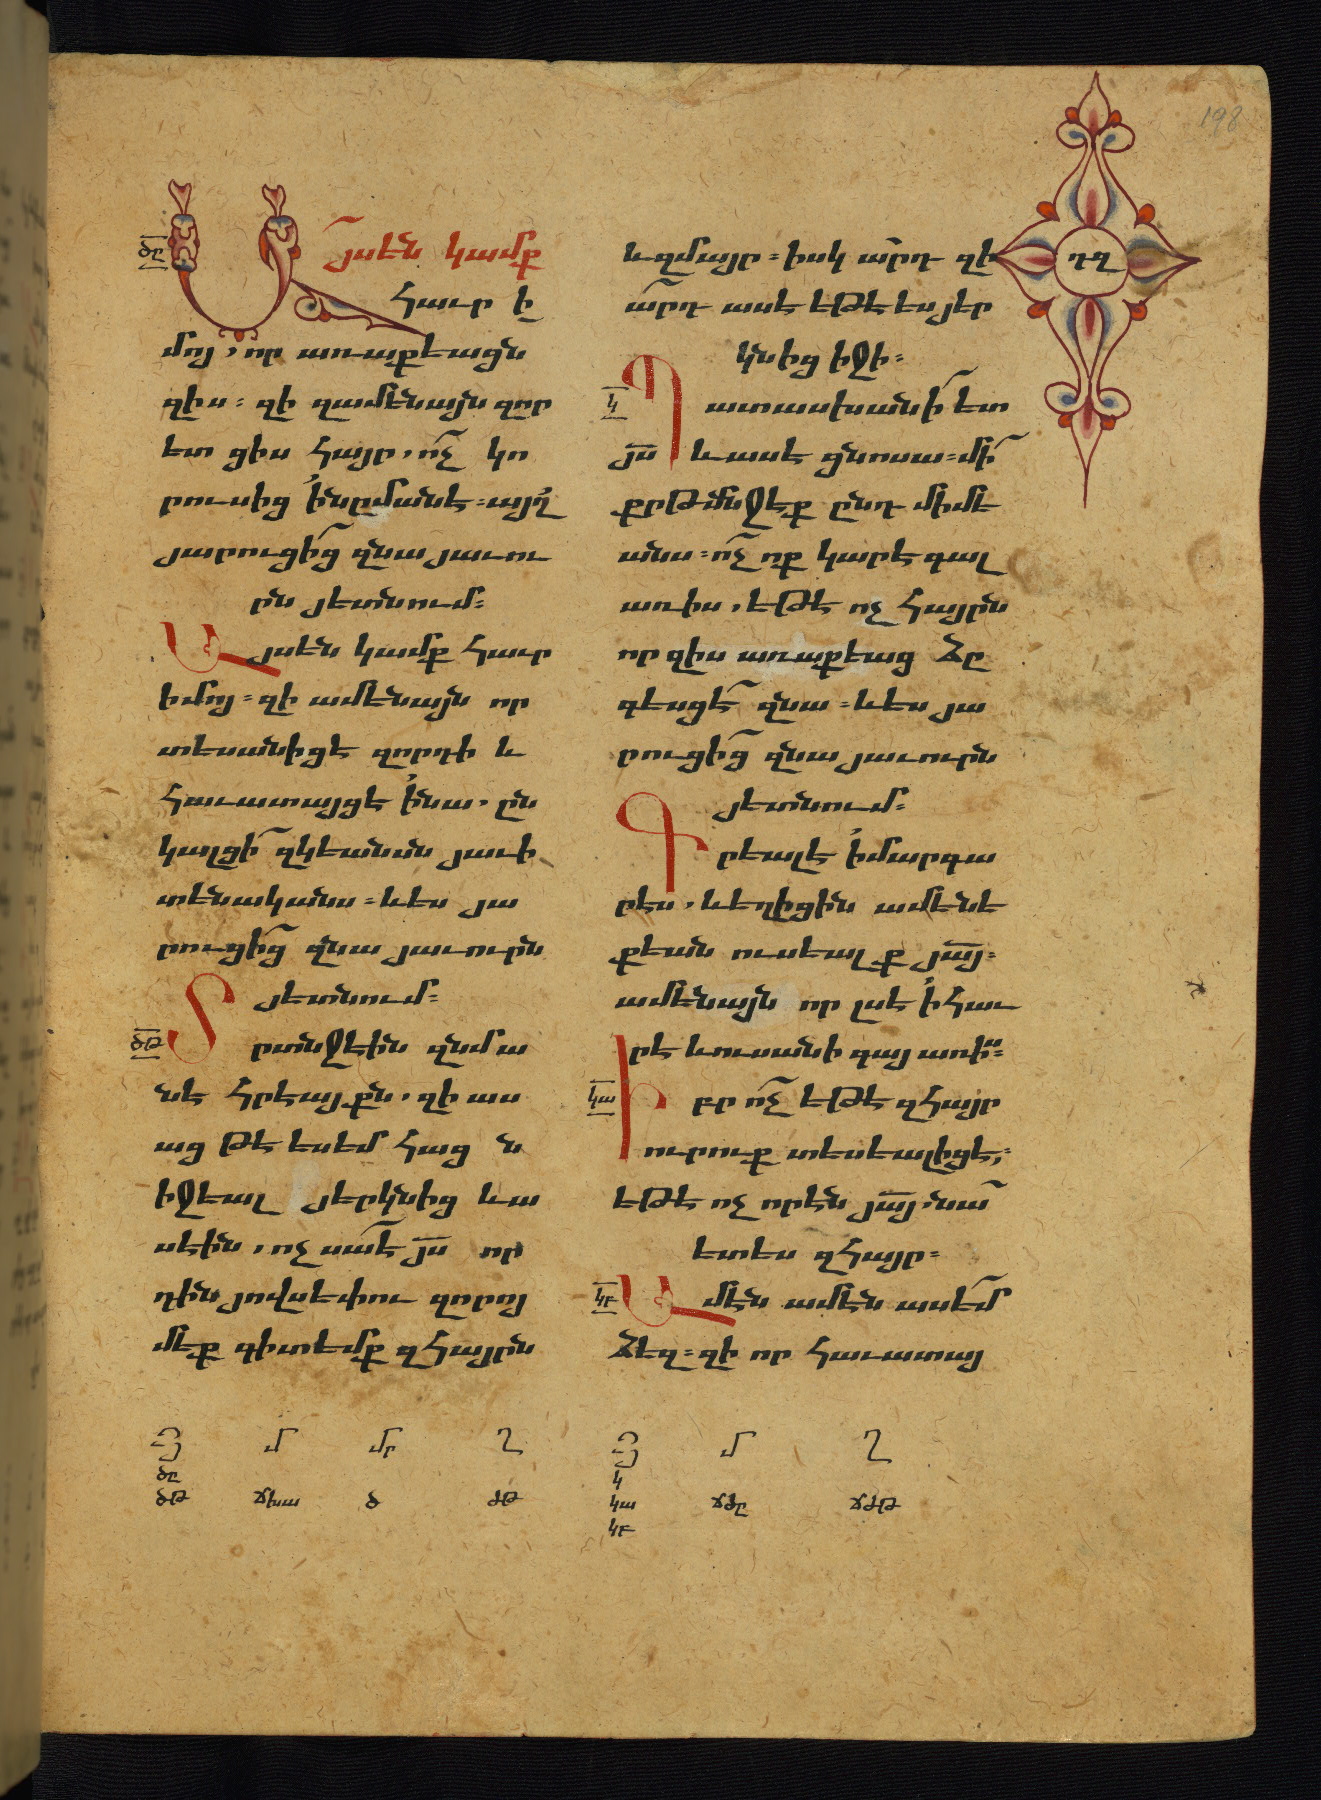 198
ԴԶ
ԾԸ
Այս են կամք
հաւր ի
մոյ, որ առաքեացն
զիս։ զի զամենայն զոր
ետ ցիս հայր, ոչ կո
րուսից ի նըմանէ։ այլ
յարուցից զնա յաւու
րն յետնում։
Այս են կամք հաւր
իմոյ։ զի ամենայն որ
տեսանիցէ զորդի և
հաւատայցէ ի նա, ըն
կալցի զկեանսն յաւի
տենականս։ և ես յա
րուցից զնա յաւուրն
յետնում։
ԾԹ
Տրտնջէին զնմա
նէ հրեայքն, զի աս
աց թէ ես եմ հաց ն
իջեալ յերկնից և ա
սէին, ոչ սա է յս որ
դին յովսեփու զորոյ
մեք գիտեմք զհայրն
և զմայր։ իսկ արդ զի
արդ ասէ եթէ ես յեր
կնից իջի։
Կ
Պատասխանի ետ
յս և ասէ ցնոսա։ մի
քրթմնջէք ընդ միմե
անս։ ոչ ոք կարէ գալ
առ իս, եթէ ոչ հայրն
որ զիս առաքեաց ձը
գեսցէ զնա։ և ես յա
րուցից զնա յաւուրն
յետնում։
Գրեալ է ի մարգա
րէս, և եղիցին ամենե
քեան ուսեալք յայ։
ամենայն որ լսէ ի հաւ
րէ և ուսանի գայ առ իս։
ԿԱ
Իբր ոչ եթէ զհայր
ուրուք տեսեալ իցէ,
եթէ ոչ որ էն յայ, նա
ետես զհայր։
ԿԲ
Ամէն ամէն ասեմ
ձեզ։ զի որ հաւատայ
Յ Մ ՄՐ Ղ
ԾԸ
ԾԹ ՃԽԱ Ծ ԺԹ
Յ Մ Ղ
Կ
ԿԱ ՃԺԸ ՃԺԹ
ԿԲ